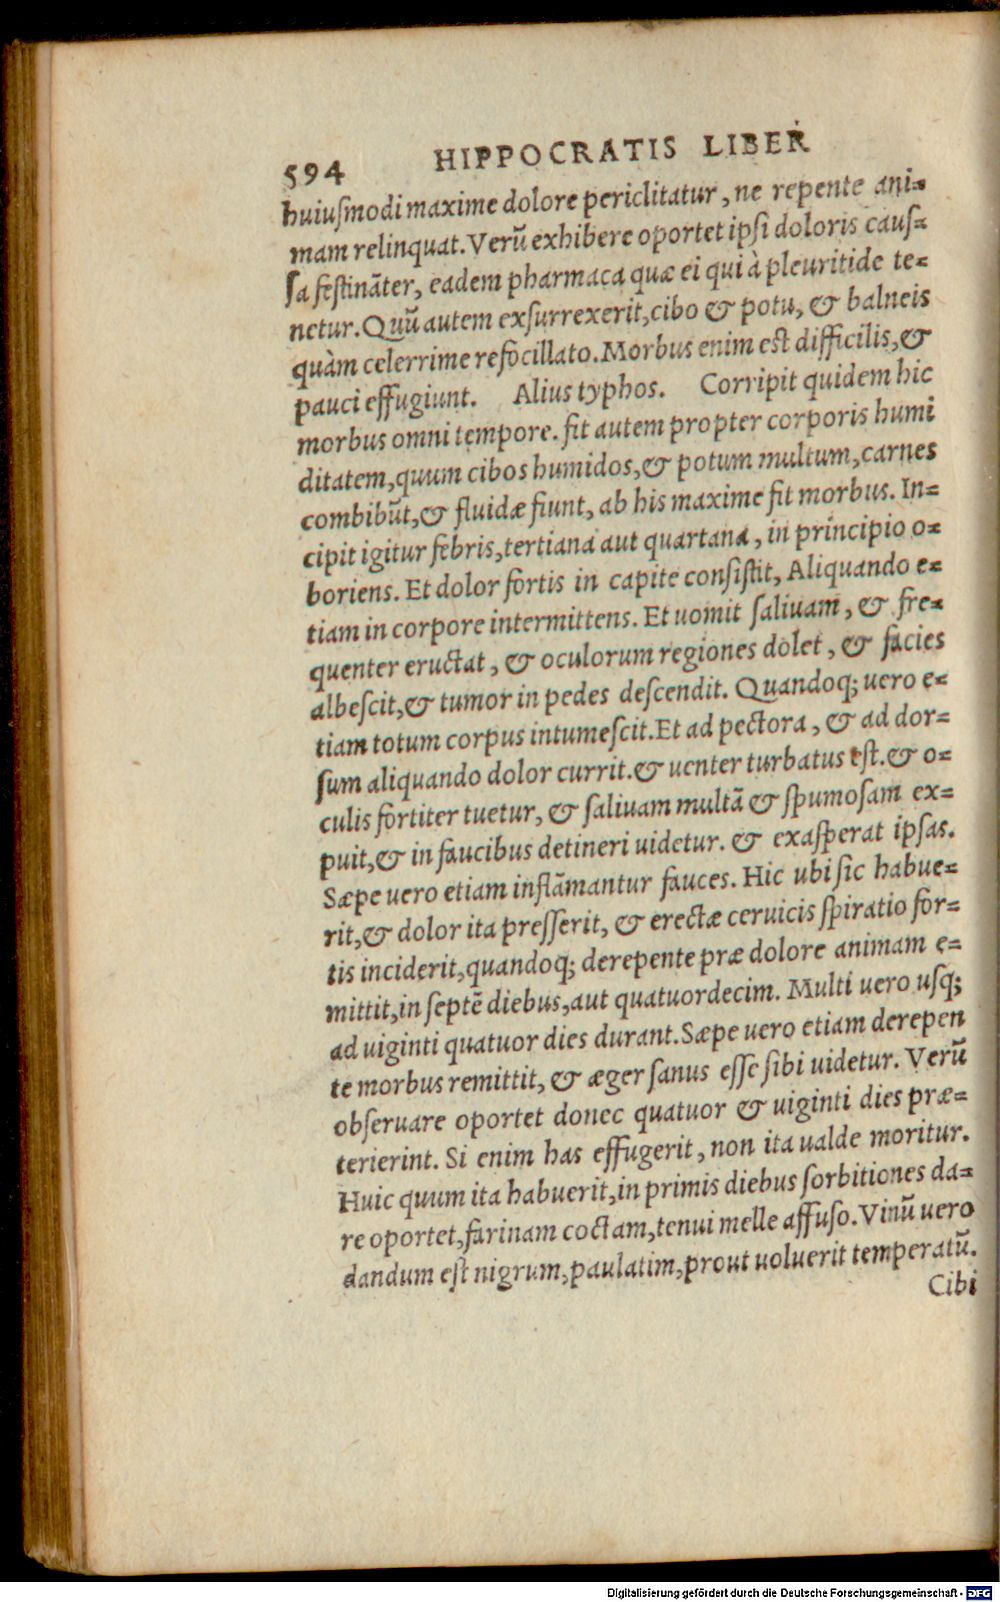 594 HIPPOCRATIS LIBER
huiuſmodi maxime dolore periclitatur, ne repente ani-
mam relinquat. Verũ exhibere oportet ipſi doloris cauſ-
ſa feſtinãter, eadem pharmaca quæ ei qui à pleuritide te-
netur. Quũ autem exſurrexerit, cibo & potu, & balneis
quàm celerrime refocillato. Morbus enim est difficilis, &
pauci effugiunt. Alius typhos. Corripit quidem hic
morbus omni tempore. fit autem propter corporis humi
ditatem, quum cibos humidos, & potum multum, carnes
combibũt, & fluidæ fiunt, ab his maxime fit morbus. In-
cipit igitur febris, tertiana aut quartana, in principio o-
boriens. Et dolor fortis in capite conſiſtit, Aliquando e-
tiam in corpore intermittens. Et uomit ſaliuam, & fre-
quenter eructat, & oculorum regiones dolet, & facies
albeſcit, & tumor in pedes deſcendit. Quandoq; uero e-
tiam totum corpus intumeſcit. Et ad pectora, & ad dor-
ſum aliquando dolor currit. & uenter turbatus eſt. & o-
culis fortiter tuetur, & ſaliuam multã & ſpumoſam ex-
puit, & in faucibus detineri uidetur. & exaſperat ipſas.
Sæpe uero etiam inflãmantur fauces. Hic ubi ſic habue-
rit, & dolor ita preſſerit, & erectæ ceruicis ſpiratio for-
tis inciderit, quandoq; derepente præ dolore animam e-
mittit, in ſeptẽ diebus, aut quatuordecim. Multi uero uſq;
ad uiginti quatuor dies durant. Sæpe uero etiam derepen
te morbus remittit, & æger ſanus eſſe ſibi uidetur. Verũ
obſeruare oportet donec quatuor & uiginti dies præ-
terierint. Si enim has effugerit, non ita ualde moritur.
Huic quum ita habuerit, in primis diebus ſorbitiones da-
re oportet, farinam coctam, tenui melle affuſo. Vinũ uero
dandum eſt nigrum, paulatim, prout uoluerit temperatũ.
Cibi
Digitalisierung gefördert durch die Deutsche Forschungsgemeinschaft - DFG